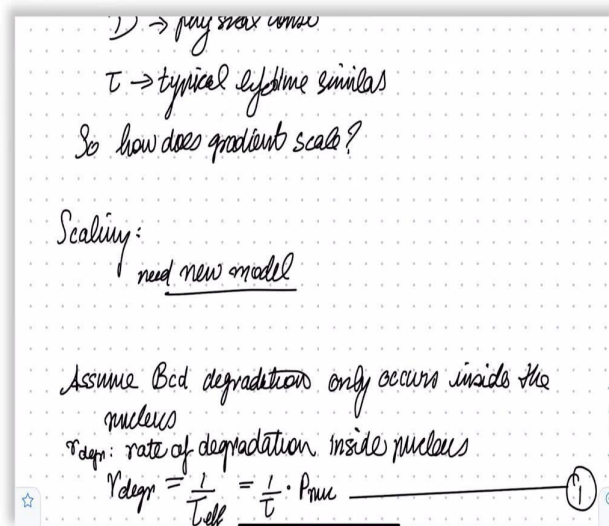 D → physical const
τ → typical lifetime similas
So how does gradient scale?
Scaling:
need new model
Assume Bcd degradation only occurs inside the
nucleus
r_degr: rate of degradation inside nucleus
r_degr = 1/τ_eff = 1/τ · P_nuc ——— ①